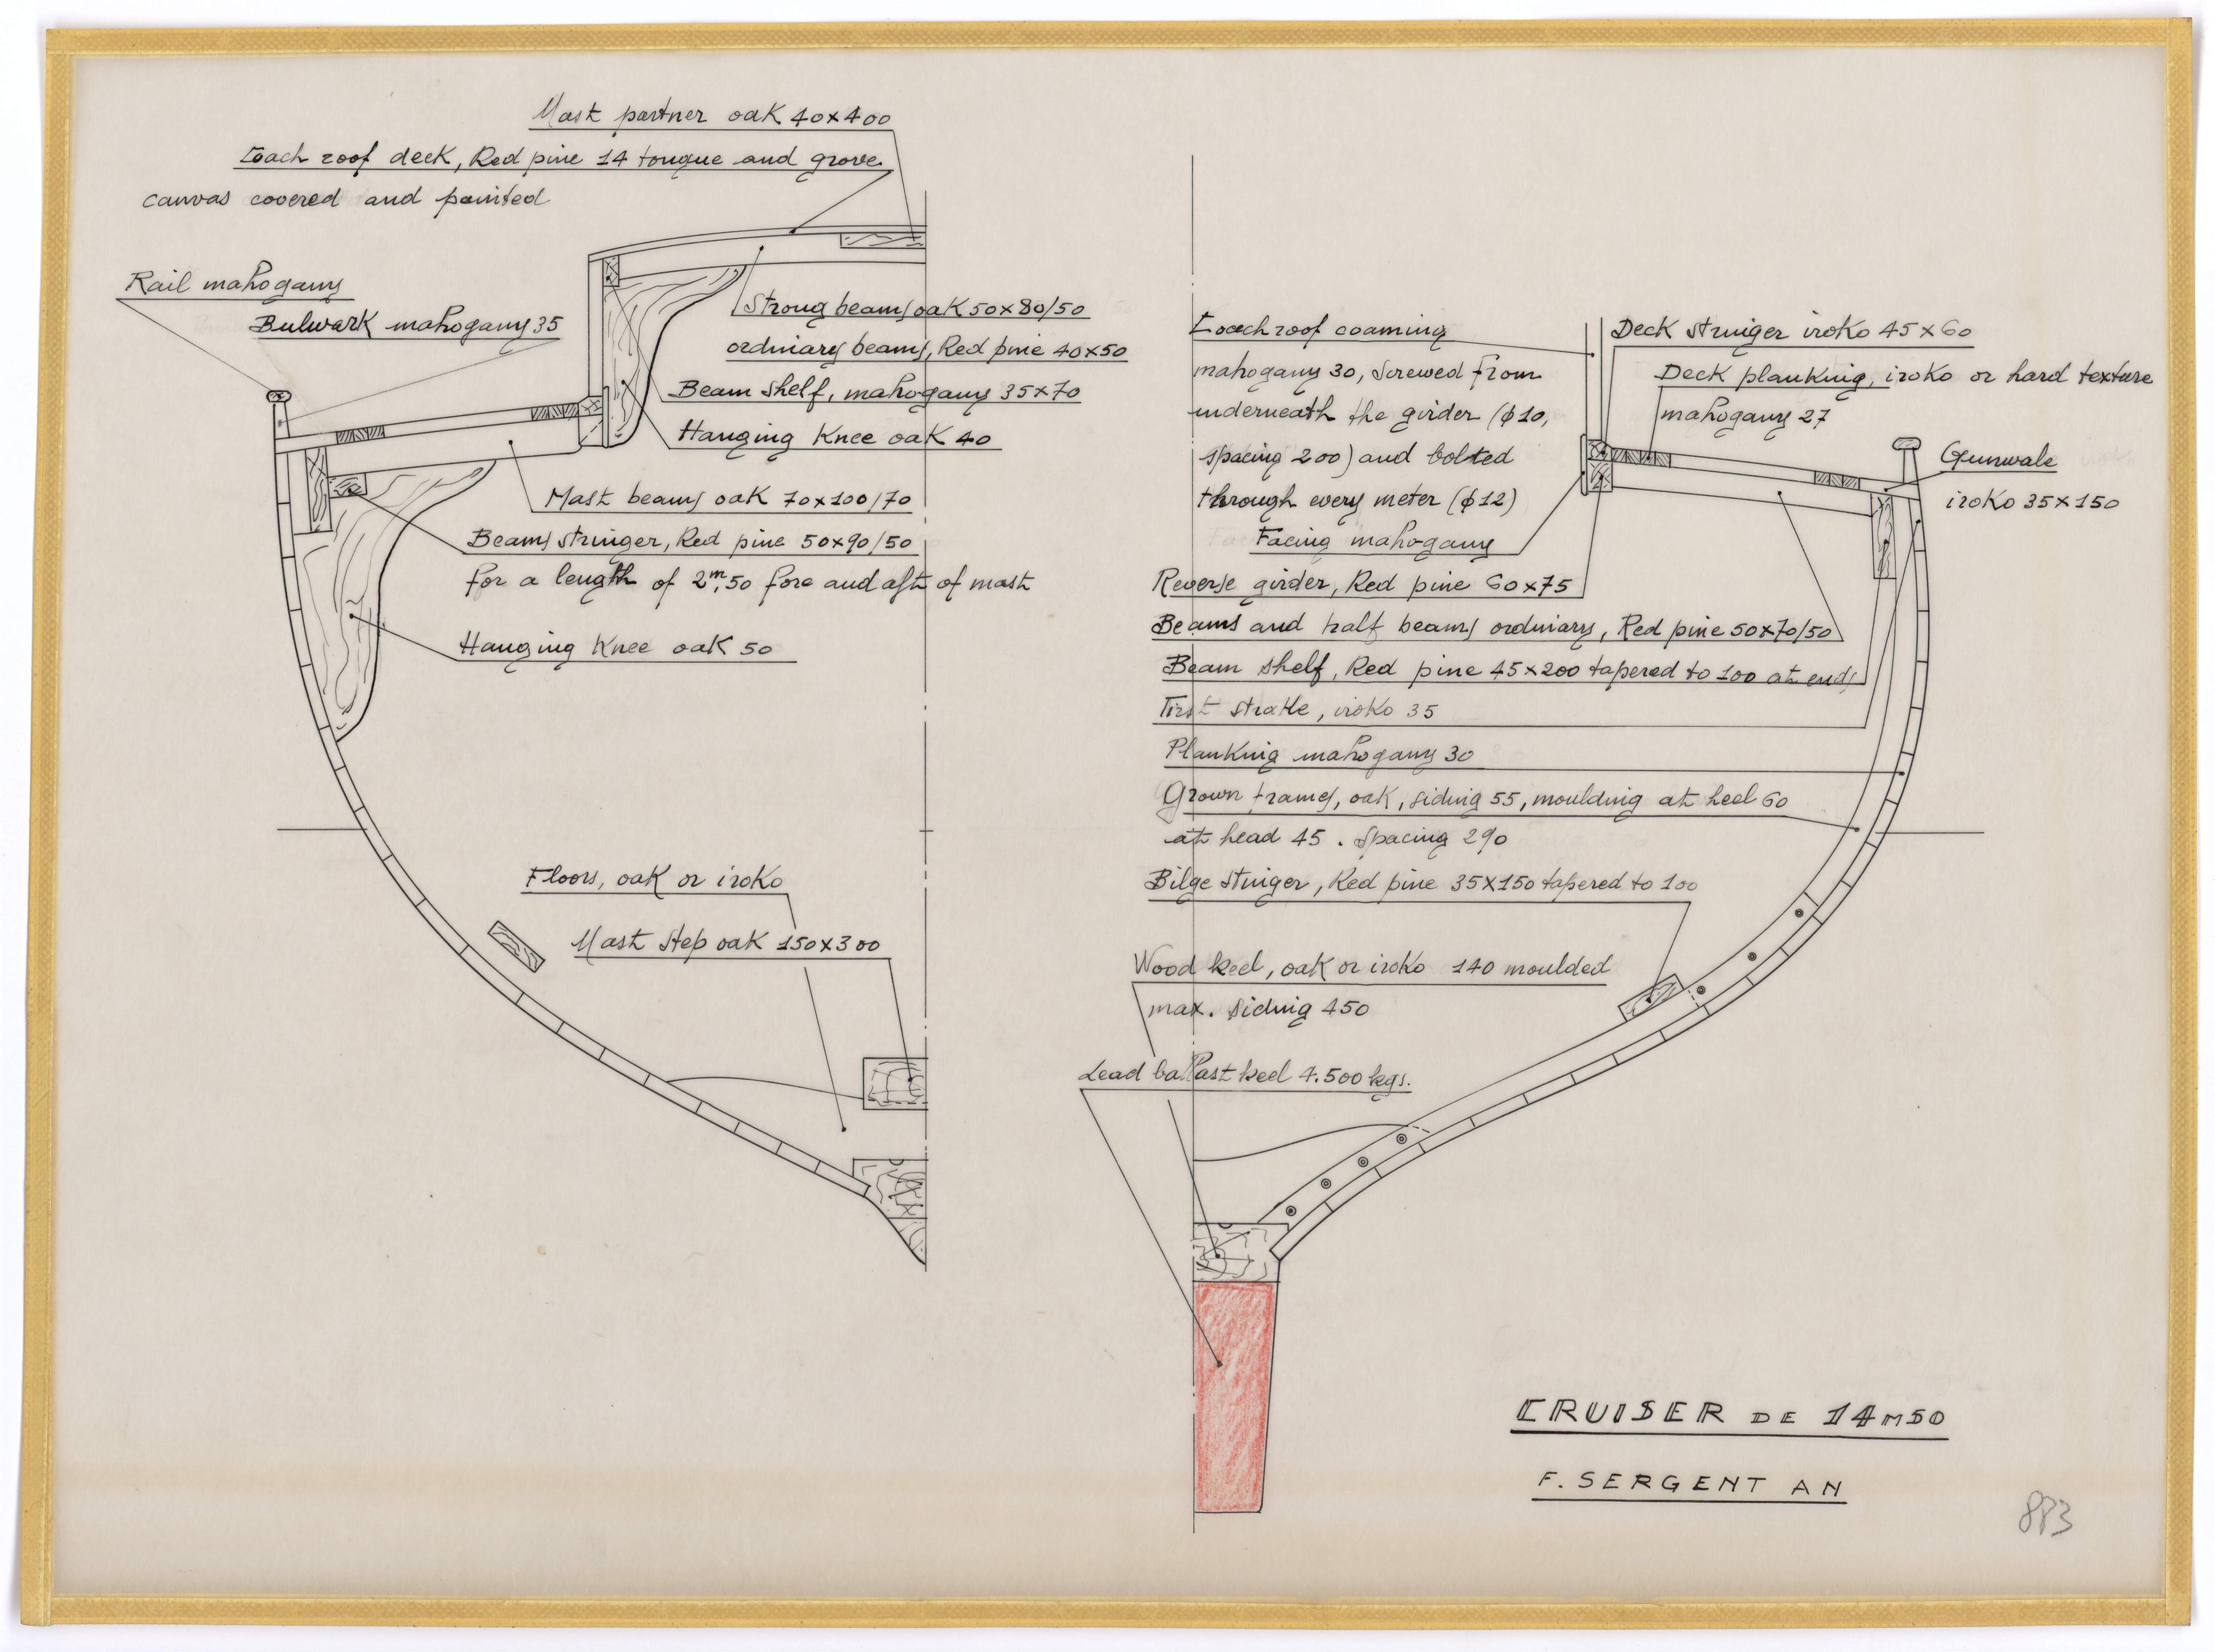 Mast partner oak 40x400
Coach roof deck, Red pine 14 tongue and grove
canvas covered and painted
Rail mahogany
Bulwark mahogany 35
Strong beams oak 50x80/50
ordinary beams, Red pine 40x50
Beam shelf, mahogany 35x70
Hanging Knee oak 40
Mast beams oak 70x100/70
Beams stringer, Red pine 50x90/50
for a length of 2m,50 fore and aft of mast
Hanging Knee oak 50
Floors, oak or iroko
Mast step oak 150x300
Coach roof coaming
mahogany 30, screwed from
underneath the girder (φ10,
spacing 200) and bolted
through every meter (φ12)
Facing mahogany
Reverse girder, Red pine 60x75
Beams and half beams ordinary, Red pine 50x70/50
Beam shelf, Red pine 45x200 tapered to 100 at ends
First strake, iroko 35
Planking mahogany 30
Grown frames, oak, siding 55, moulding at heel 60
at head 45. Spacing 290
Bilge stringer, Red pine 35x150 tapered to 100
Wood keel, oak or iroko 140 moulded
max. siding 450
Lead ballast keel 4.500 kgs.
Deck stringer iroko 45x60
Deck planking, iroko or hard texture
mahogany 27
Gunwale
iroko 35x150
CRUISER DE 14M50
F. SERGENT AN
883